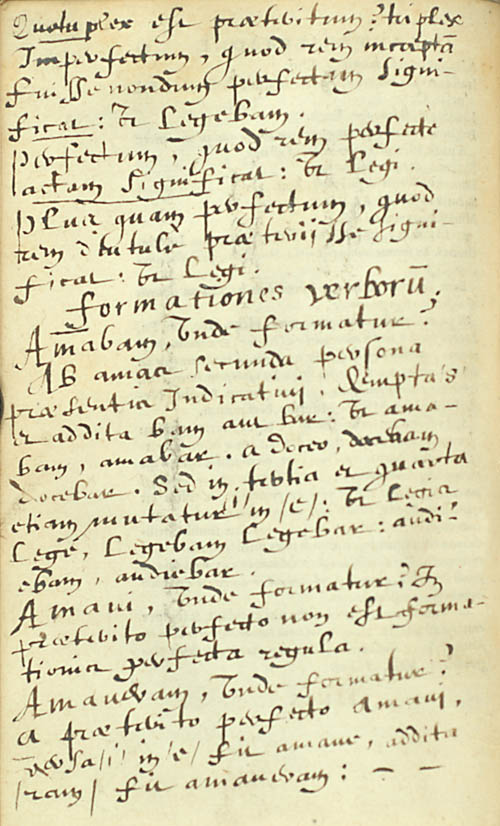 Quotuplex est præteritum? triplex
Imperfectum, quod rem inceptā
fuisse nondum perfectam signi-
ficat: vt Legebam.
Perfectum, quod rem perfecte
actam significat: vt Legi.
Plus quam perfectum, quod
rem præteriisse signi-
ficat: vt Legi.
Formationes verborū.
Amabam, vnde formatur?
Ab amas secunda persona
præsentis Indicatiui, dempta /s/
et addita bam aut bar: vt ama-
bam, amabar. a doceo, docebam
docebar. Sed in tertia et quarta
etiam mutatur /i/ in /e/: vt Legis
Lege, Legebam Legebar: audi
ebam, audiebar.
Amaui, vnde formatur? In
præterito perfecto non est forma-
tionis perfecta regula.
Amaueram, vnde formatur?
a præterito perfecto amaui,
versa /i/ in /e/ fit amaue, addita
/ram/ fit amaueram: - -